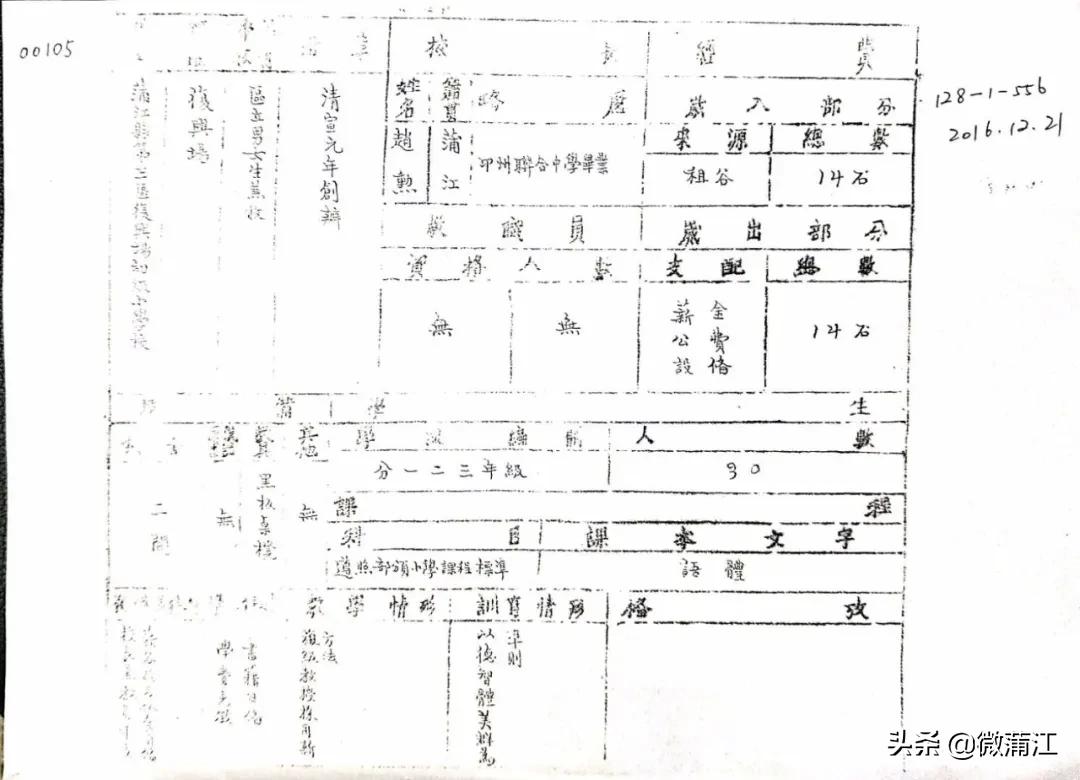 00105
128-1-556
2016.12.21
沿革
校
經費
姓名
籍貫
略歷
歲入部分
來源
總數
蒲江縣第三區復興場初級小學校
復興場
區立男女生兼收
清宣元年創辦
趙勲
蒲江
卭州聯合中學畢業
租谷
14石
教職員
歲出部分
資格
人數
支配
總數
無
無
薪金
公費
設俻
14石
學生
其他
學級編制
人數
二間
無
黑板桌櫈
無
分一二三年級
30
課程
科目
課本文字
遵照部頒小學課程標準
語體
教學情形
訓育情形
備攷
學費免徵
書籍自俻
複級教授採用新方法
以德智體美群為準則
头条 @微蒲江